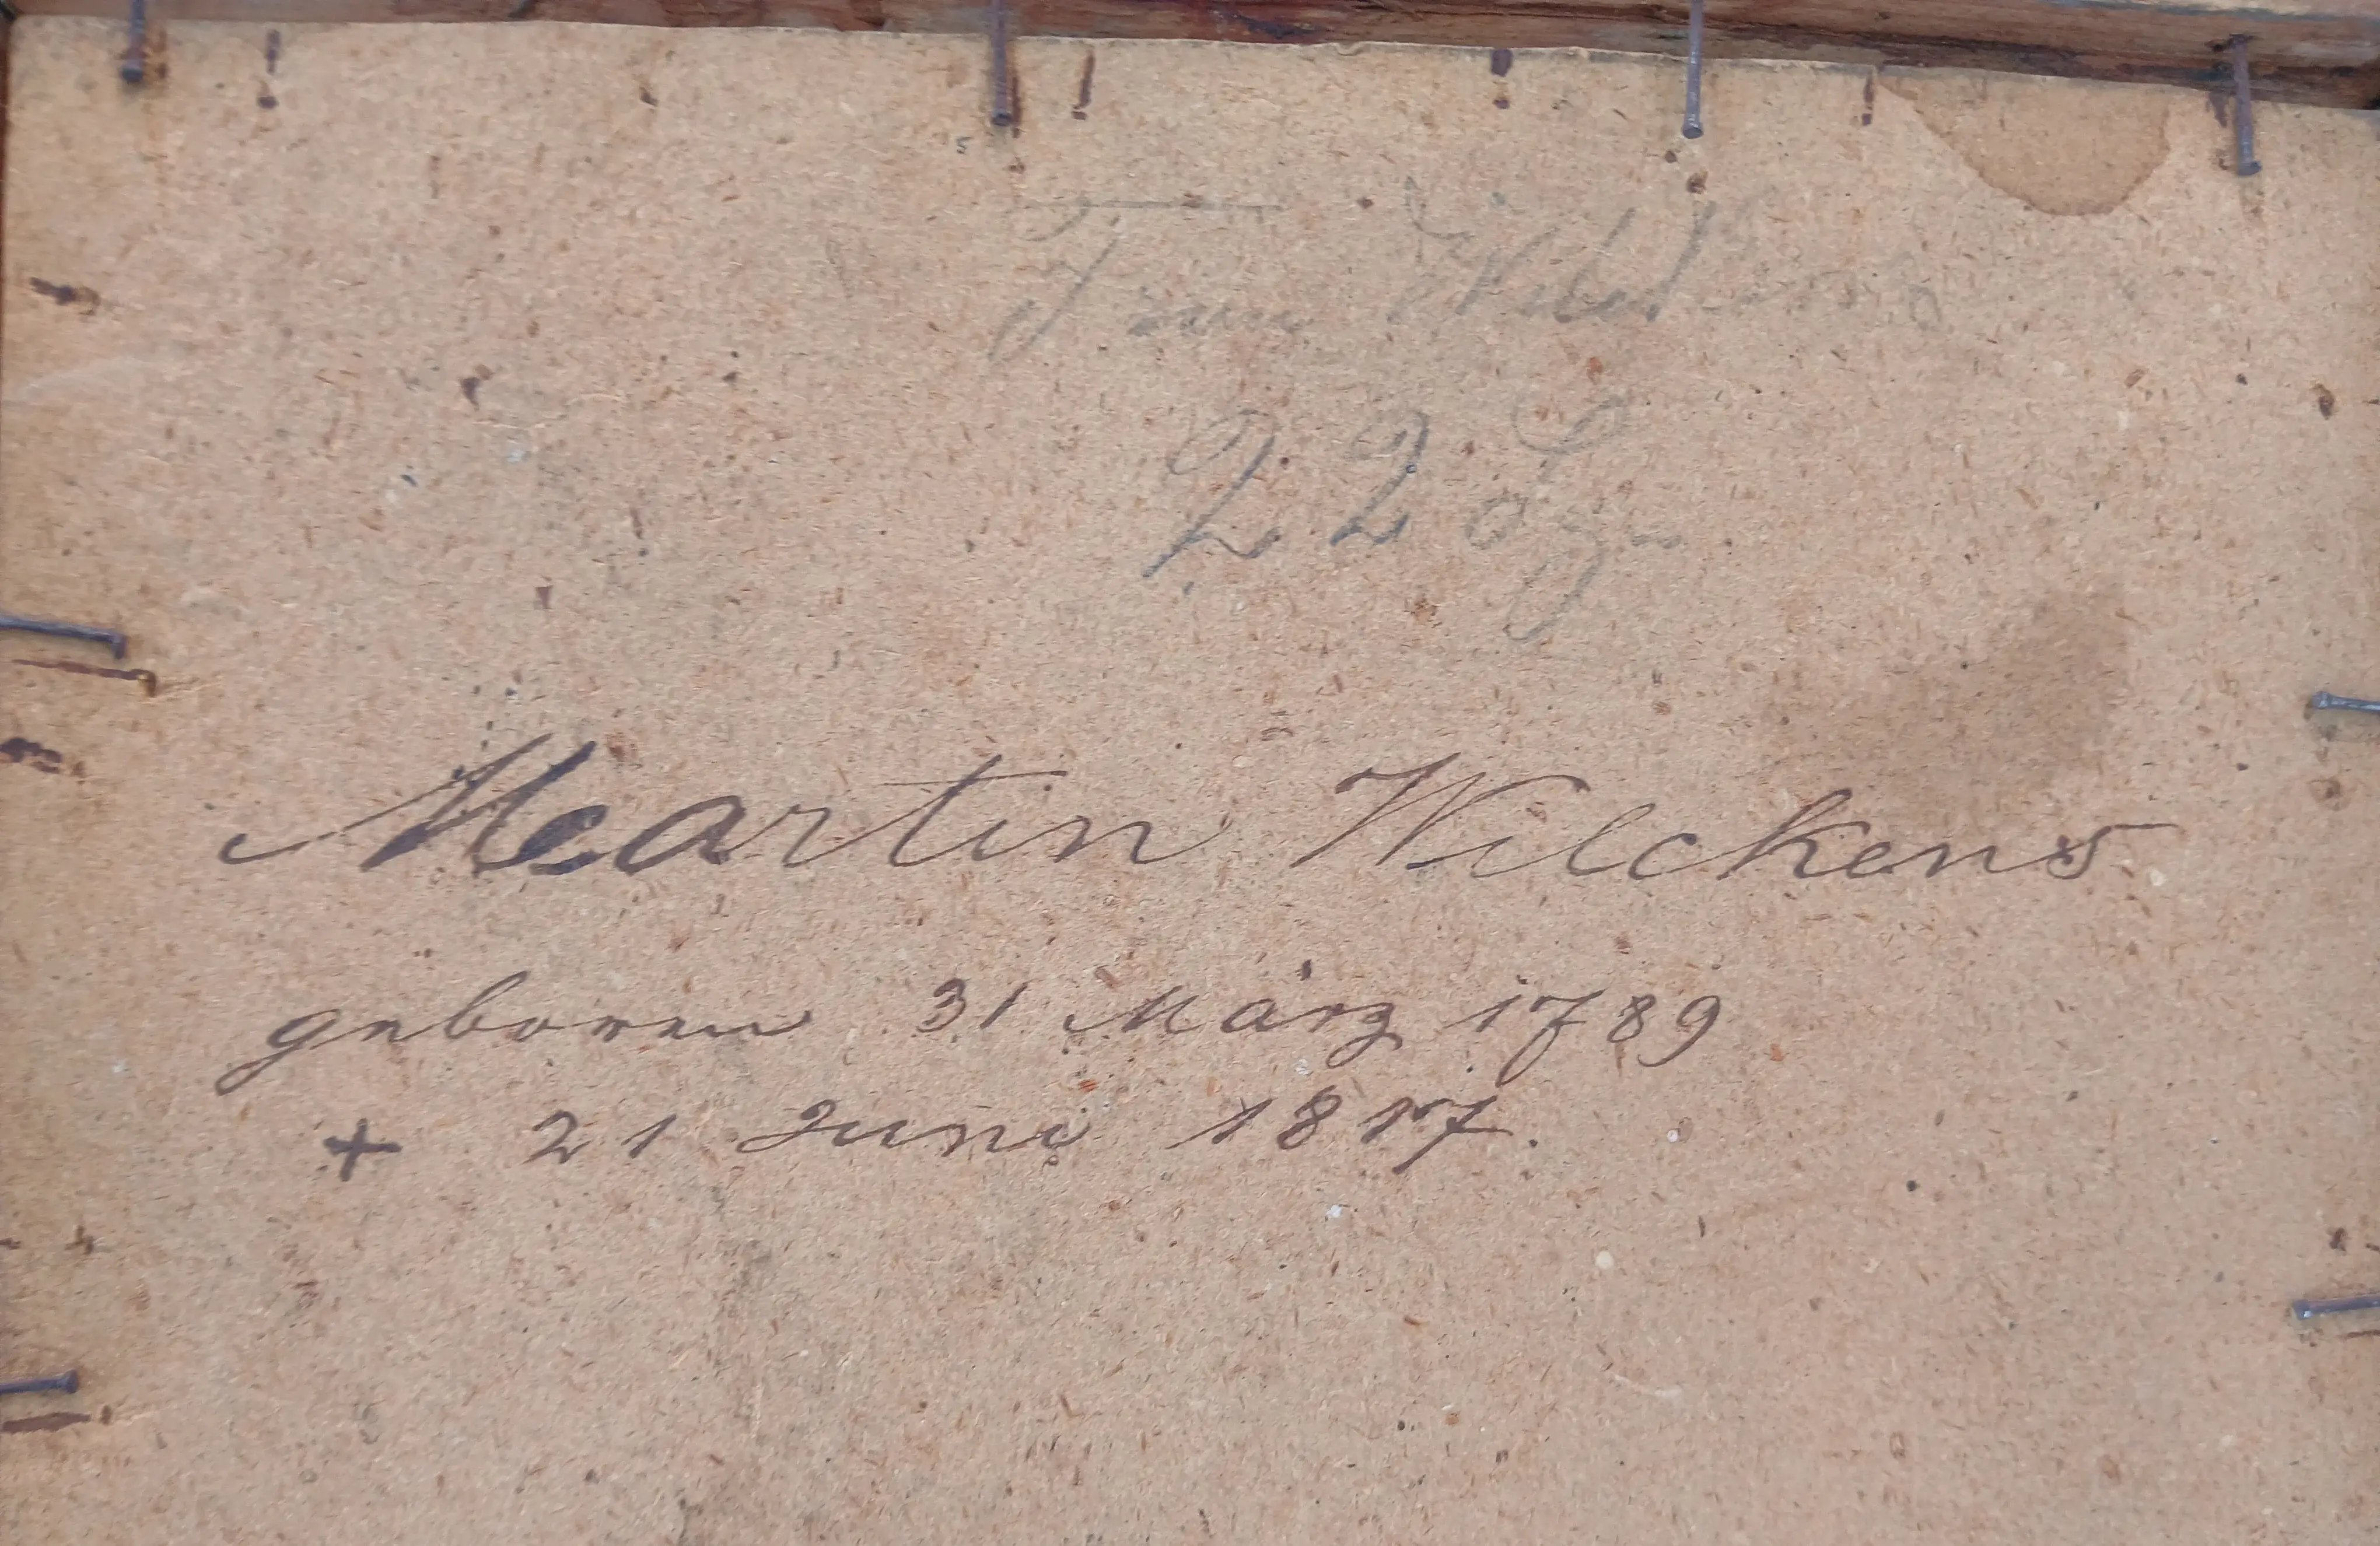 Frau Wilckens
22 Sgr
Martin Wilckens
geboren 31 März 1789
+ 21 Juni 1817.